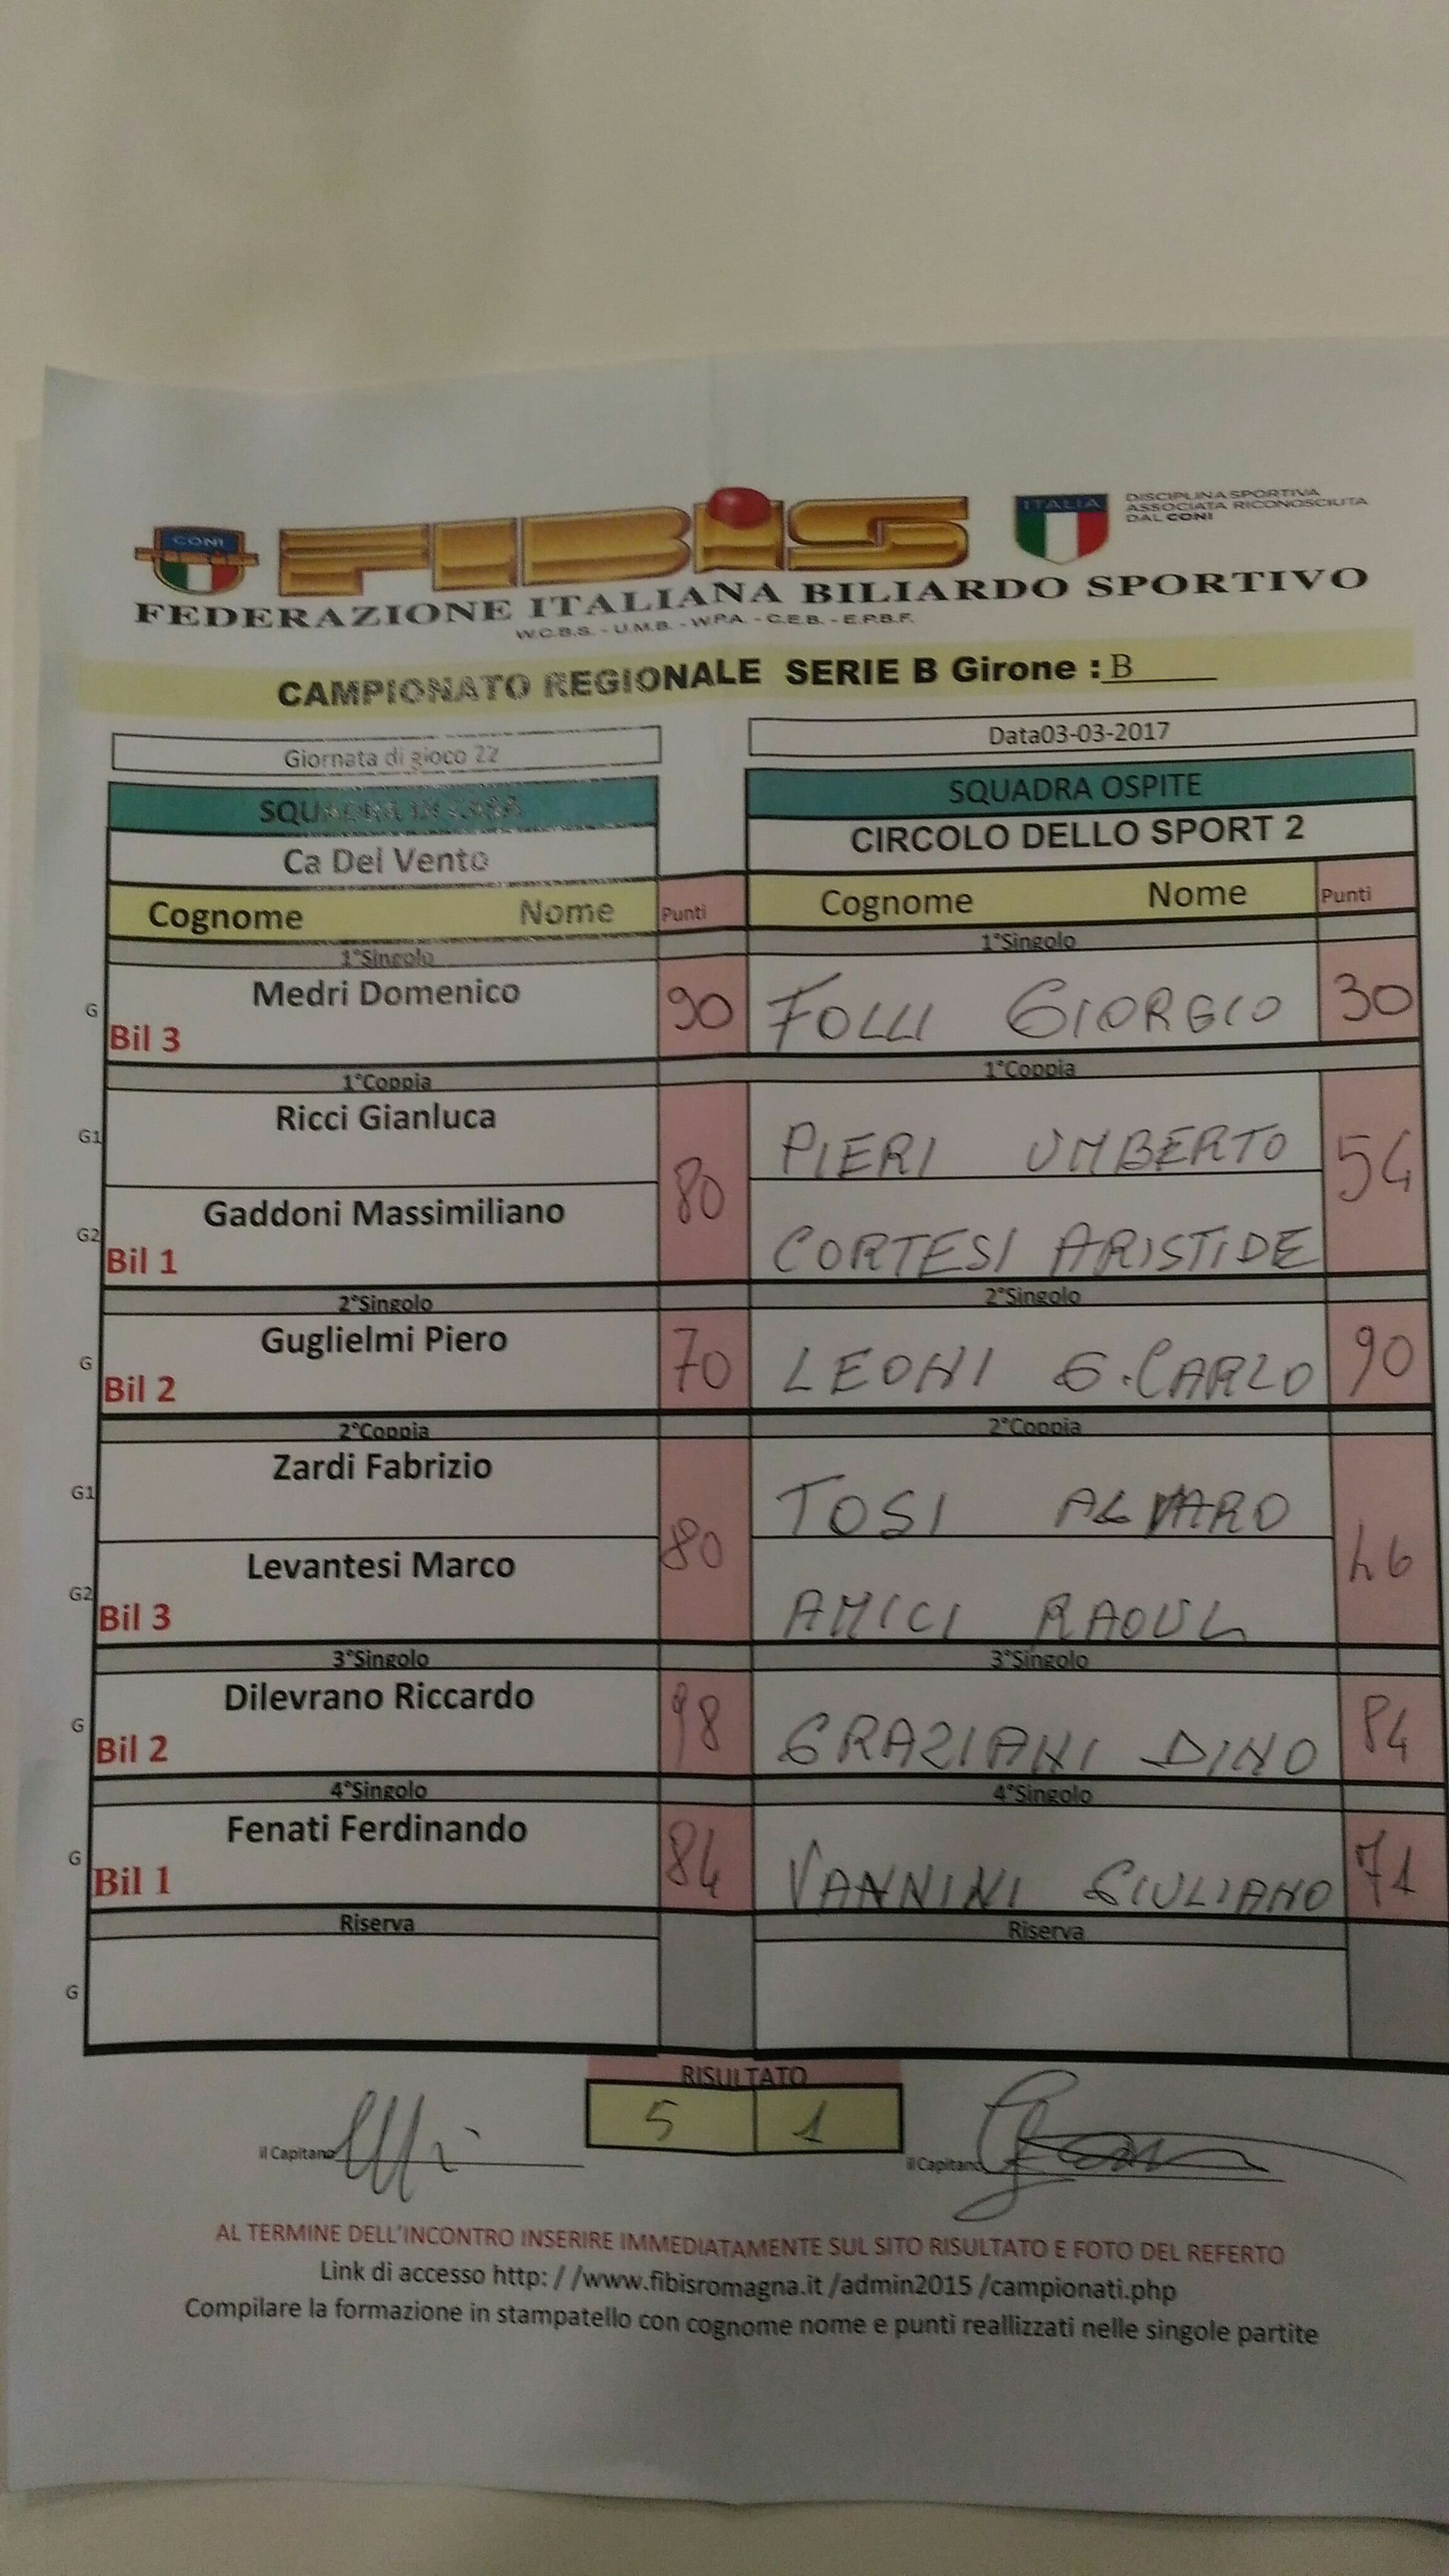 CONI FIBiS ITALIA DISCIPLINA SPORTIVA
ASSOCIATA RICONOSCIUTA
DAL CONI
FEDERAZIONE ITALIANA BILIARDO SPORTIVO
W.C.B.S. - U.M.B. - W.P.A. - C.E.B. - E.P.B.F.
CAMPIONATO REGIONALE SERIE B Girone : B
Giornata di gioco 22 Data03-03-2017
SQUADRA IN CASA SQUADRA OSPITE
Ca Del Vento CIRCOLO DELLO SPORT 2
Cognome Nome Punti Cognome Nome Punti
1°Singolo 1°Singolo
G Medri Domenico 90 FOLLI GIORGIO 30
Bil 3
1°Coppia 1°Coppia
G1 Ricci Gianluca PIERI UMBERTO
80 54
G2 Gaddoni Massimiliano CORTESI ARISTIDE
Bil 1
2°Singolo 2°Singolo
G Guglielmi Piero 70 LEONI G.CARLO 90
Bil 2
2°Coppia 2°Coppia
G1 Zardi Fabrizio TOSI ALVARO
80 46
G2 Levantesi Marco AMICI RAOUL
Bil 3
3°Singolo 3°Singolo
G Dilevrano Riccardo 98 GRAZIANI DINO 84
Bil 2
4°Singolo 4°Singolo
G Fenati Ferdinando 84 VANNINI GIULIANO 71
Bil 1
Riserva Riserva
G
RISULTATO
5 1
il Capitano il Capitano
AL TERMINE DELL'INCONTRO INSERIRE IMMEDIATAMENTE SUL SITO RISULTATO E FOTO DEL REFERTO
Link di accesso http: / /www.fibisromagna.it /admin2015 /campionati.php
Compilare la formazione in stampatello con cognome nome e punti reallizzati nelle singole partite